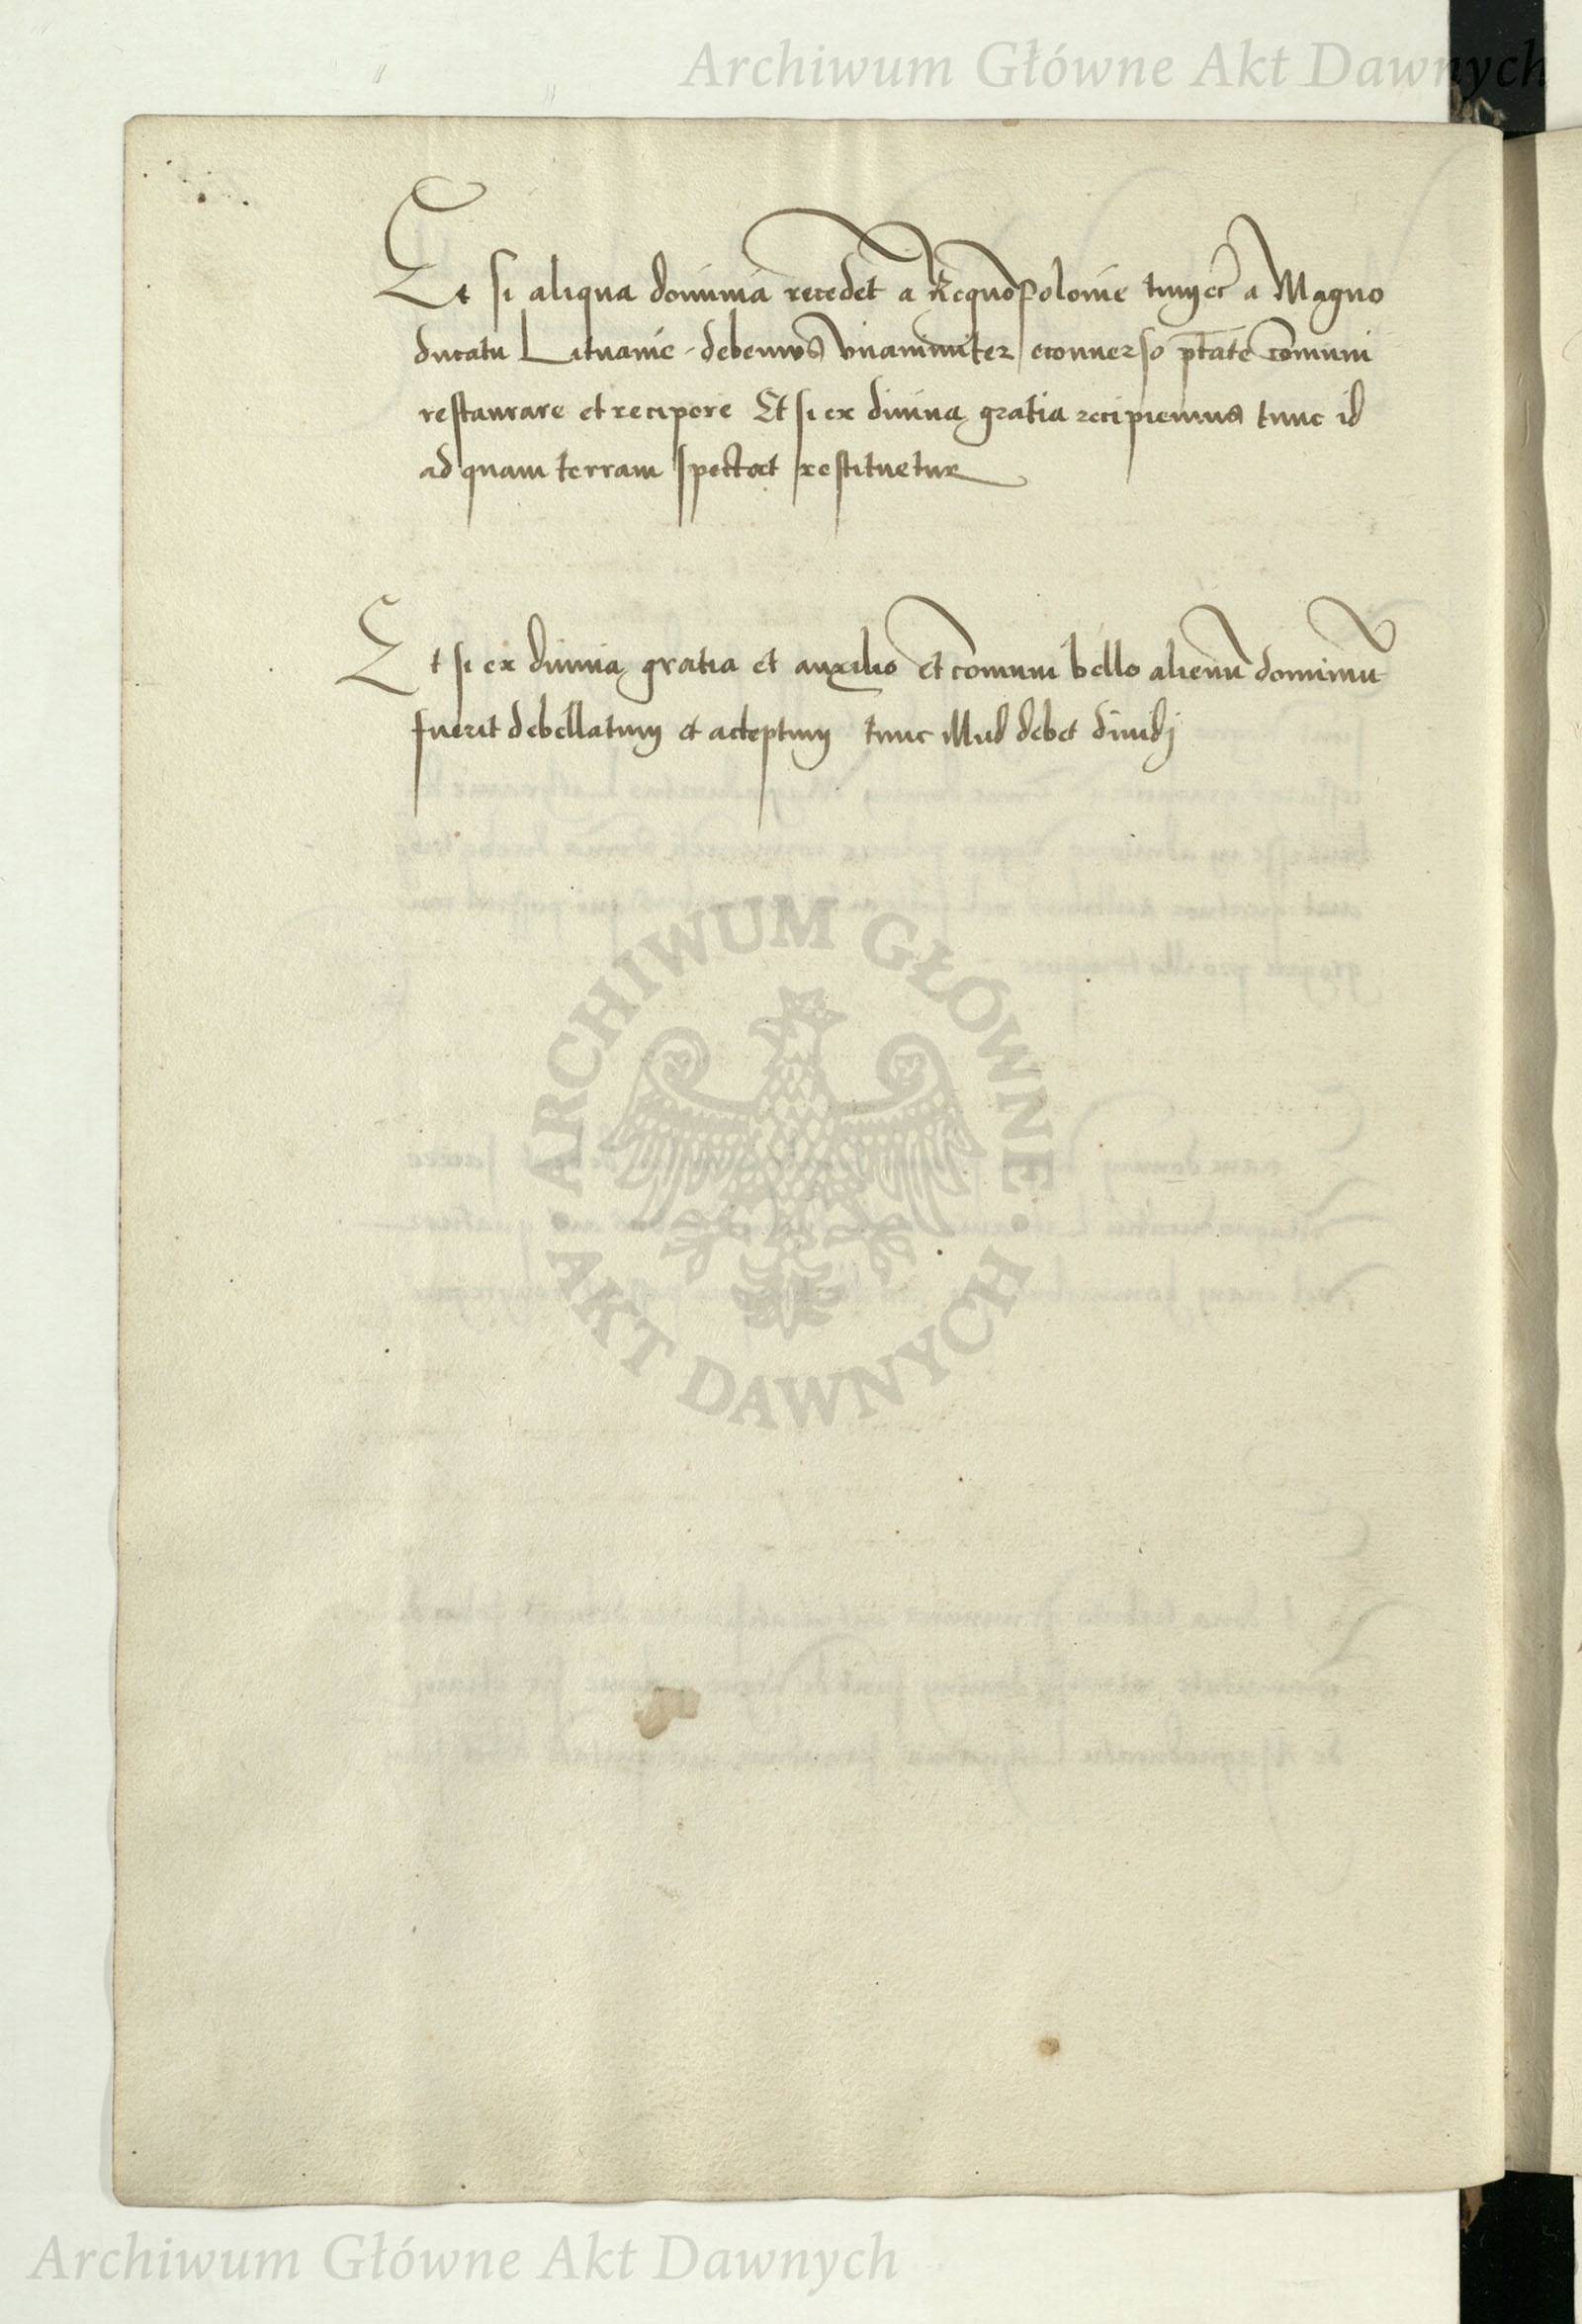 Archiwum Główne Akt Dawnych
Et si aliqua dominia recedet a Regno Polonie a Magno
ducatu Lituanie debemus vnanimiter econuerso ptate comuni
restaurare et recipere Et si ex diuina gratia recipiemus tunc id
ad quam terram spectat restituetur
Et si ex diuina gratia et auxilio et comuni bello alienu dominiu
fuerit debellatum et acceptum tunc illud debet diuidj
ARCHIWUM GŁÓWNE
AKT DAWNYCH
Archiwum Główne Akt Dawnych